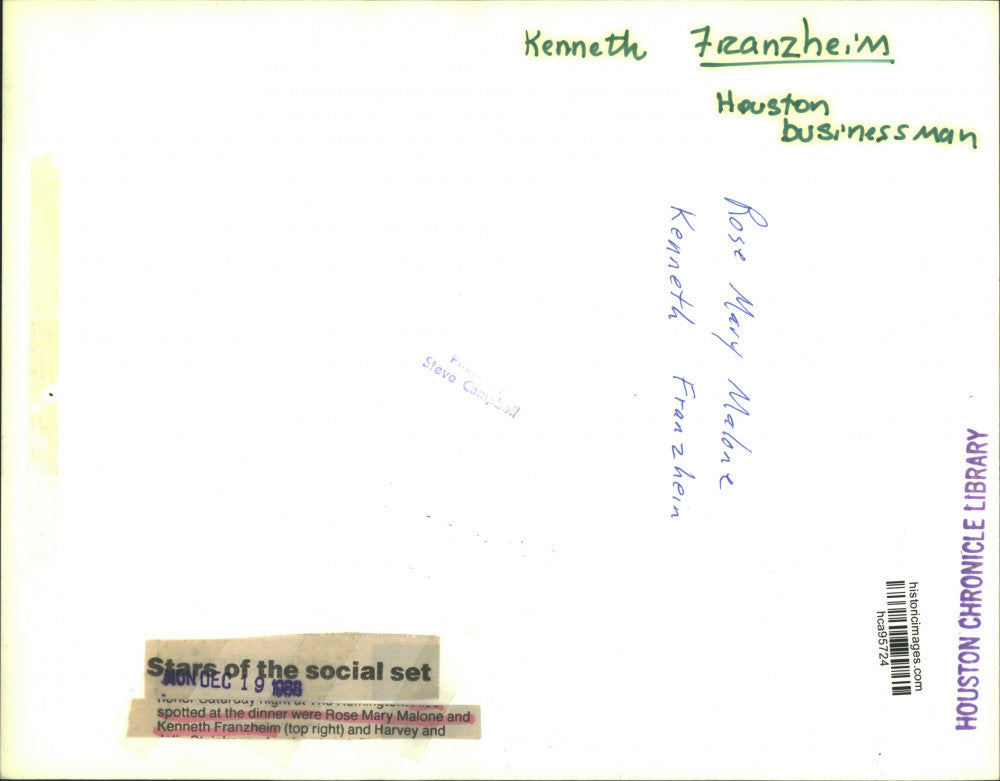 Kenneth Franzheim
Houston
businessman
Rose Mary Malone
Kenneth Franzhein
Steve Campbell
HOUSTON CHRONICLE LIBRARY
historicimages.com
hca95724
Stars of the social set
MON DEC 19 1988
honor Saturday night at The
spotted at the dinner were Rose Mary Malone and
Kenneth Franzheim (top right) and Harvey and